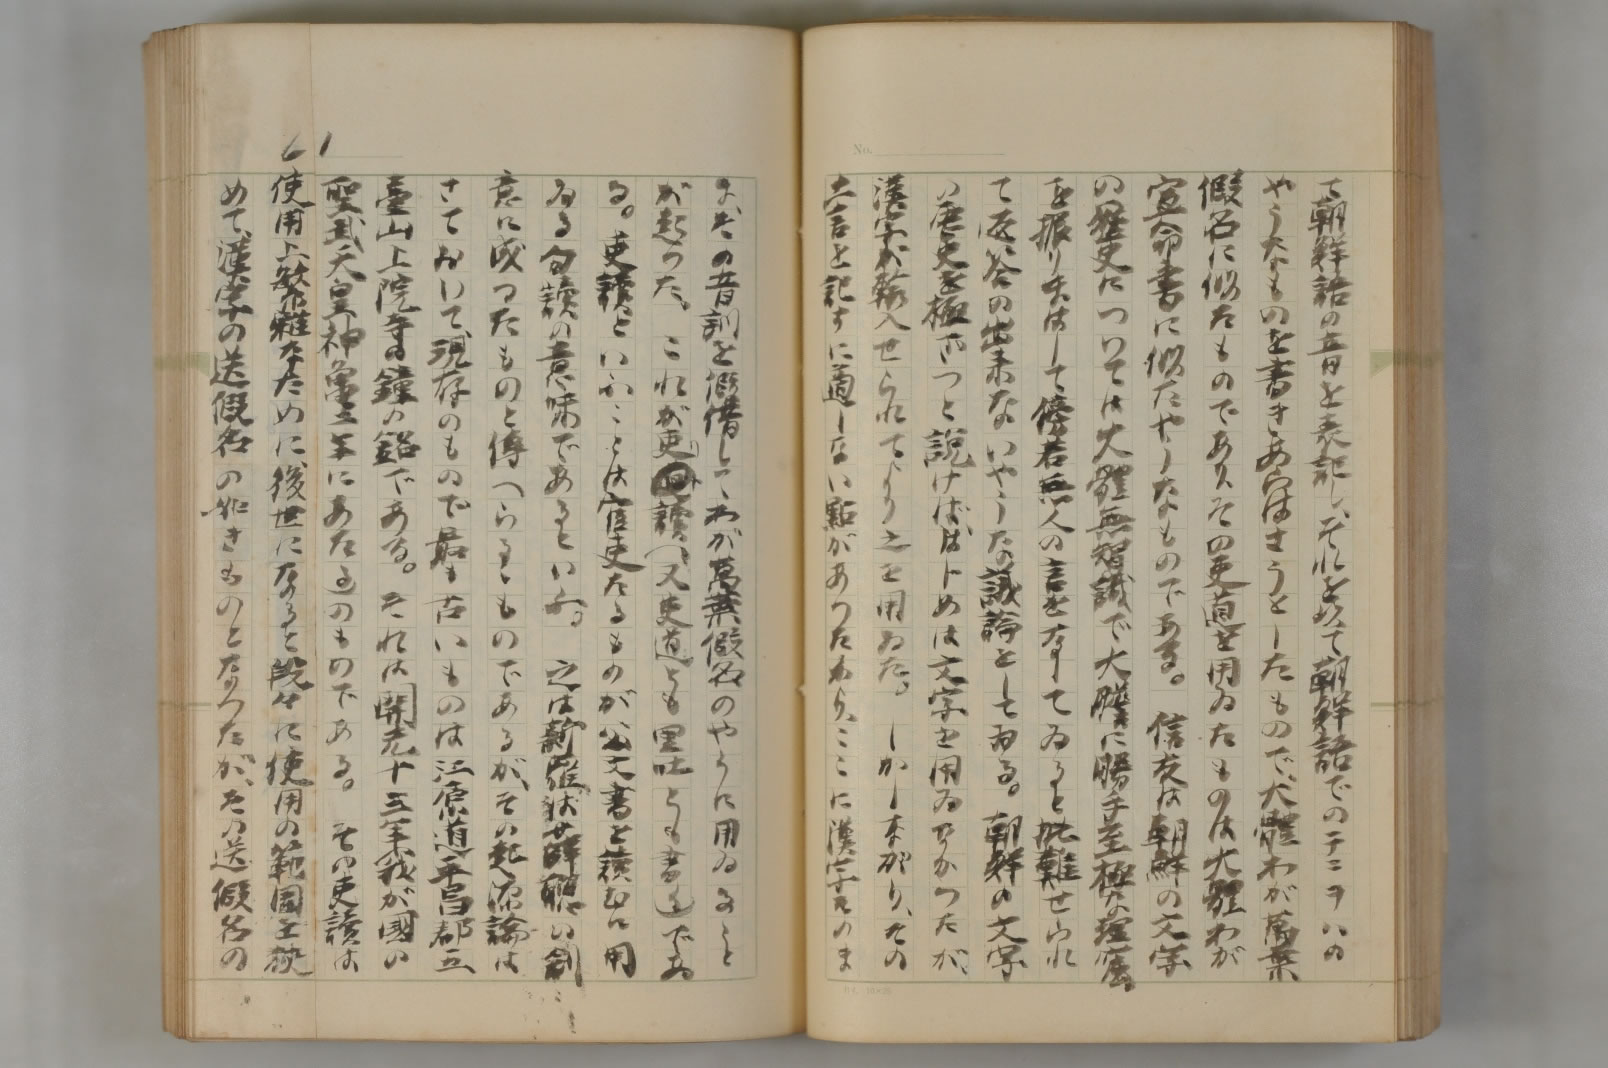 て朝鮮語の音を表記し、それを以て朝鮮語でのテニヲハの
やうなものを書きあらはさうとしたもので、大體わが萬葉
假名に似たものであり、その吏道を用ゐたものは大體わが
宣命書に似たやうなものである。信友は朝鮮の文字
の歴史については大體無智識で大膽に勝手至極な理窟
を振りまはして傍若無人の言をなしてゐると批難せられ
て応答の出来ないやうな議論をしてゐる。朝鮮の文字
の歴史を極ざつと説けば、はじめは文字を用ゐなかつたが、
漢字が輸入せられてより之を用ゐた。しかしながら、その
土言を記すに適しない點があつたから、ここに漢字そのま
ま、その音訓を假借して、わが萬葉假名のやうに用ゐること
が起つた、これが吏讀(又吏道とも里吐とも書く)であ
る。吏讀といふことは官吏たるものが公文書を讀むに用
ゐる句讀の意味であるといふ。之は新羅の薛聰の創
意に成つたものと傳へらるゝものであるが、その起源論は
さておいて、現存のもので最も古いものは江原道平昌郡五
臺山上院寺の鐘の銘である。それは開元十三年我が國の
聖武天皇神龜二年にあたるのものである。その吏讀は
使用上繁雜なために後世になると段々に使用の範圍を狹
めて、漢字の送假名の如きものとなつたが、その送假名の
No.
61